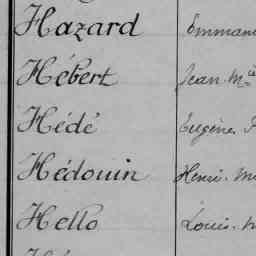 Hazard
Hébert Jean M
Hédé Eugène
Hédouin Henri
Hello Louis